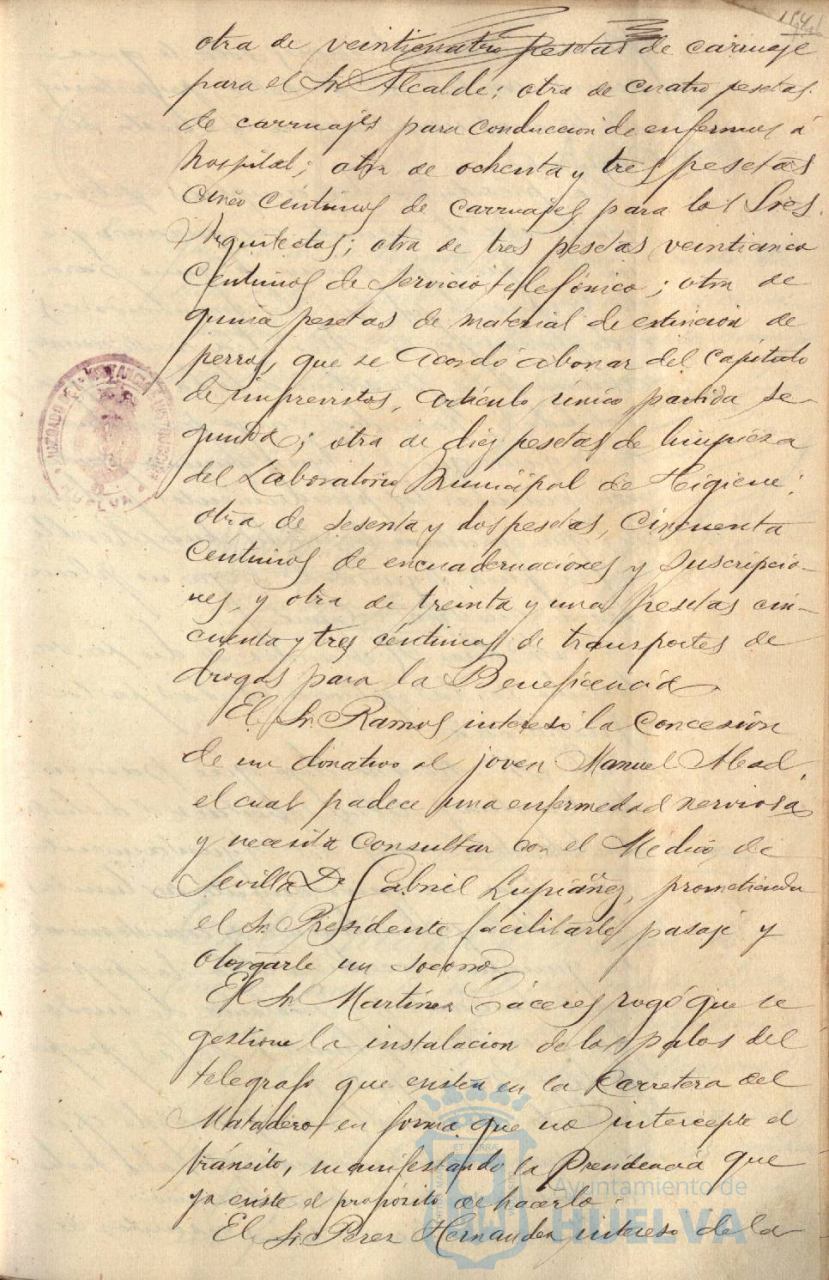 otra de veinticuatro pesetas de carruaje
para el Sr. Alcalde; otra de cuatro pesetas
de carruajes para conduccion de enfermos á
hospital; otra de ochenta y tres pesetas
cinco centimos de carruajes para los Sres.
Arquitectos; otra de tres pesetas veinticinco
centimos de servicio telefónico; otra de
quince pesetas de material de extincion de
perros, que se acordó abonar del capitulo
de imprevistos, artículo único partida se-
gunda; otra de diez pesetas de limpieza
del Laboratorio Municipal de Higiene;
otra de sesenta y dos pesetas, cincuenta
centimos de encuadernaciones y suscripcio-
nes, y otra de treinta y una pesetas cin-
cuenta y tres centimos de transportes de
drogas para la Beneficencia.
El Sr. Ramos interesó la concesión
de un donativo al joven Manuel Abad,
el cual padece una enfermedad nerviosa
y necesita consultar con el Medico de
Sevilla Dn. Gabriel Lupiáñez, prometiendo
el Sr. Presidente facilitarle pasaje y
otorgarle un socorro.
El Sr. Martinez Cáceres rogó que se
gestione la instalacion de los palos del
telegrafo que existen en la Carretera del
Matadero en forma que no intercepte el
tránsito, manifestando la Presidencia que
ya existe el propósito de hacerlo.
El Sr. Perez Hernandez intereso de la
Ayuntamiento de
HUELVA